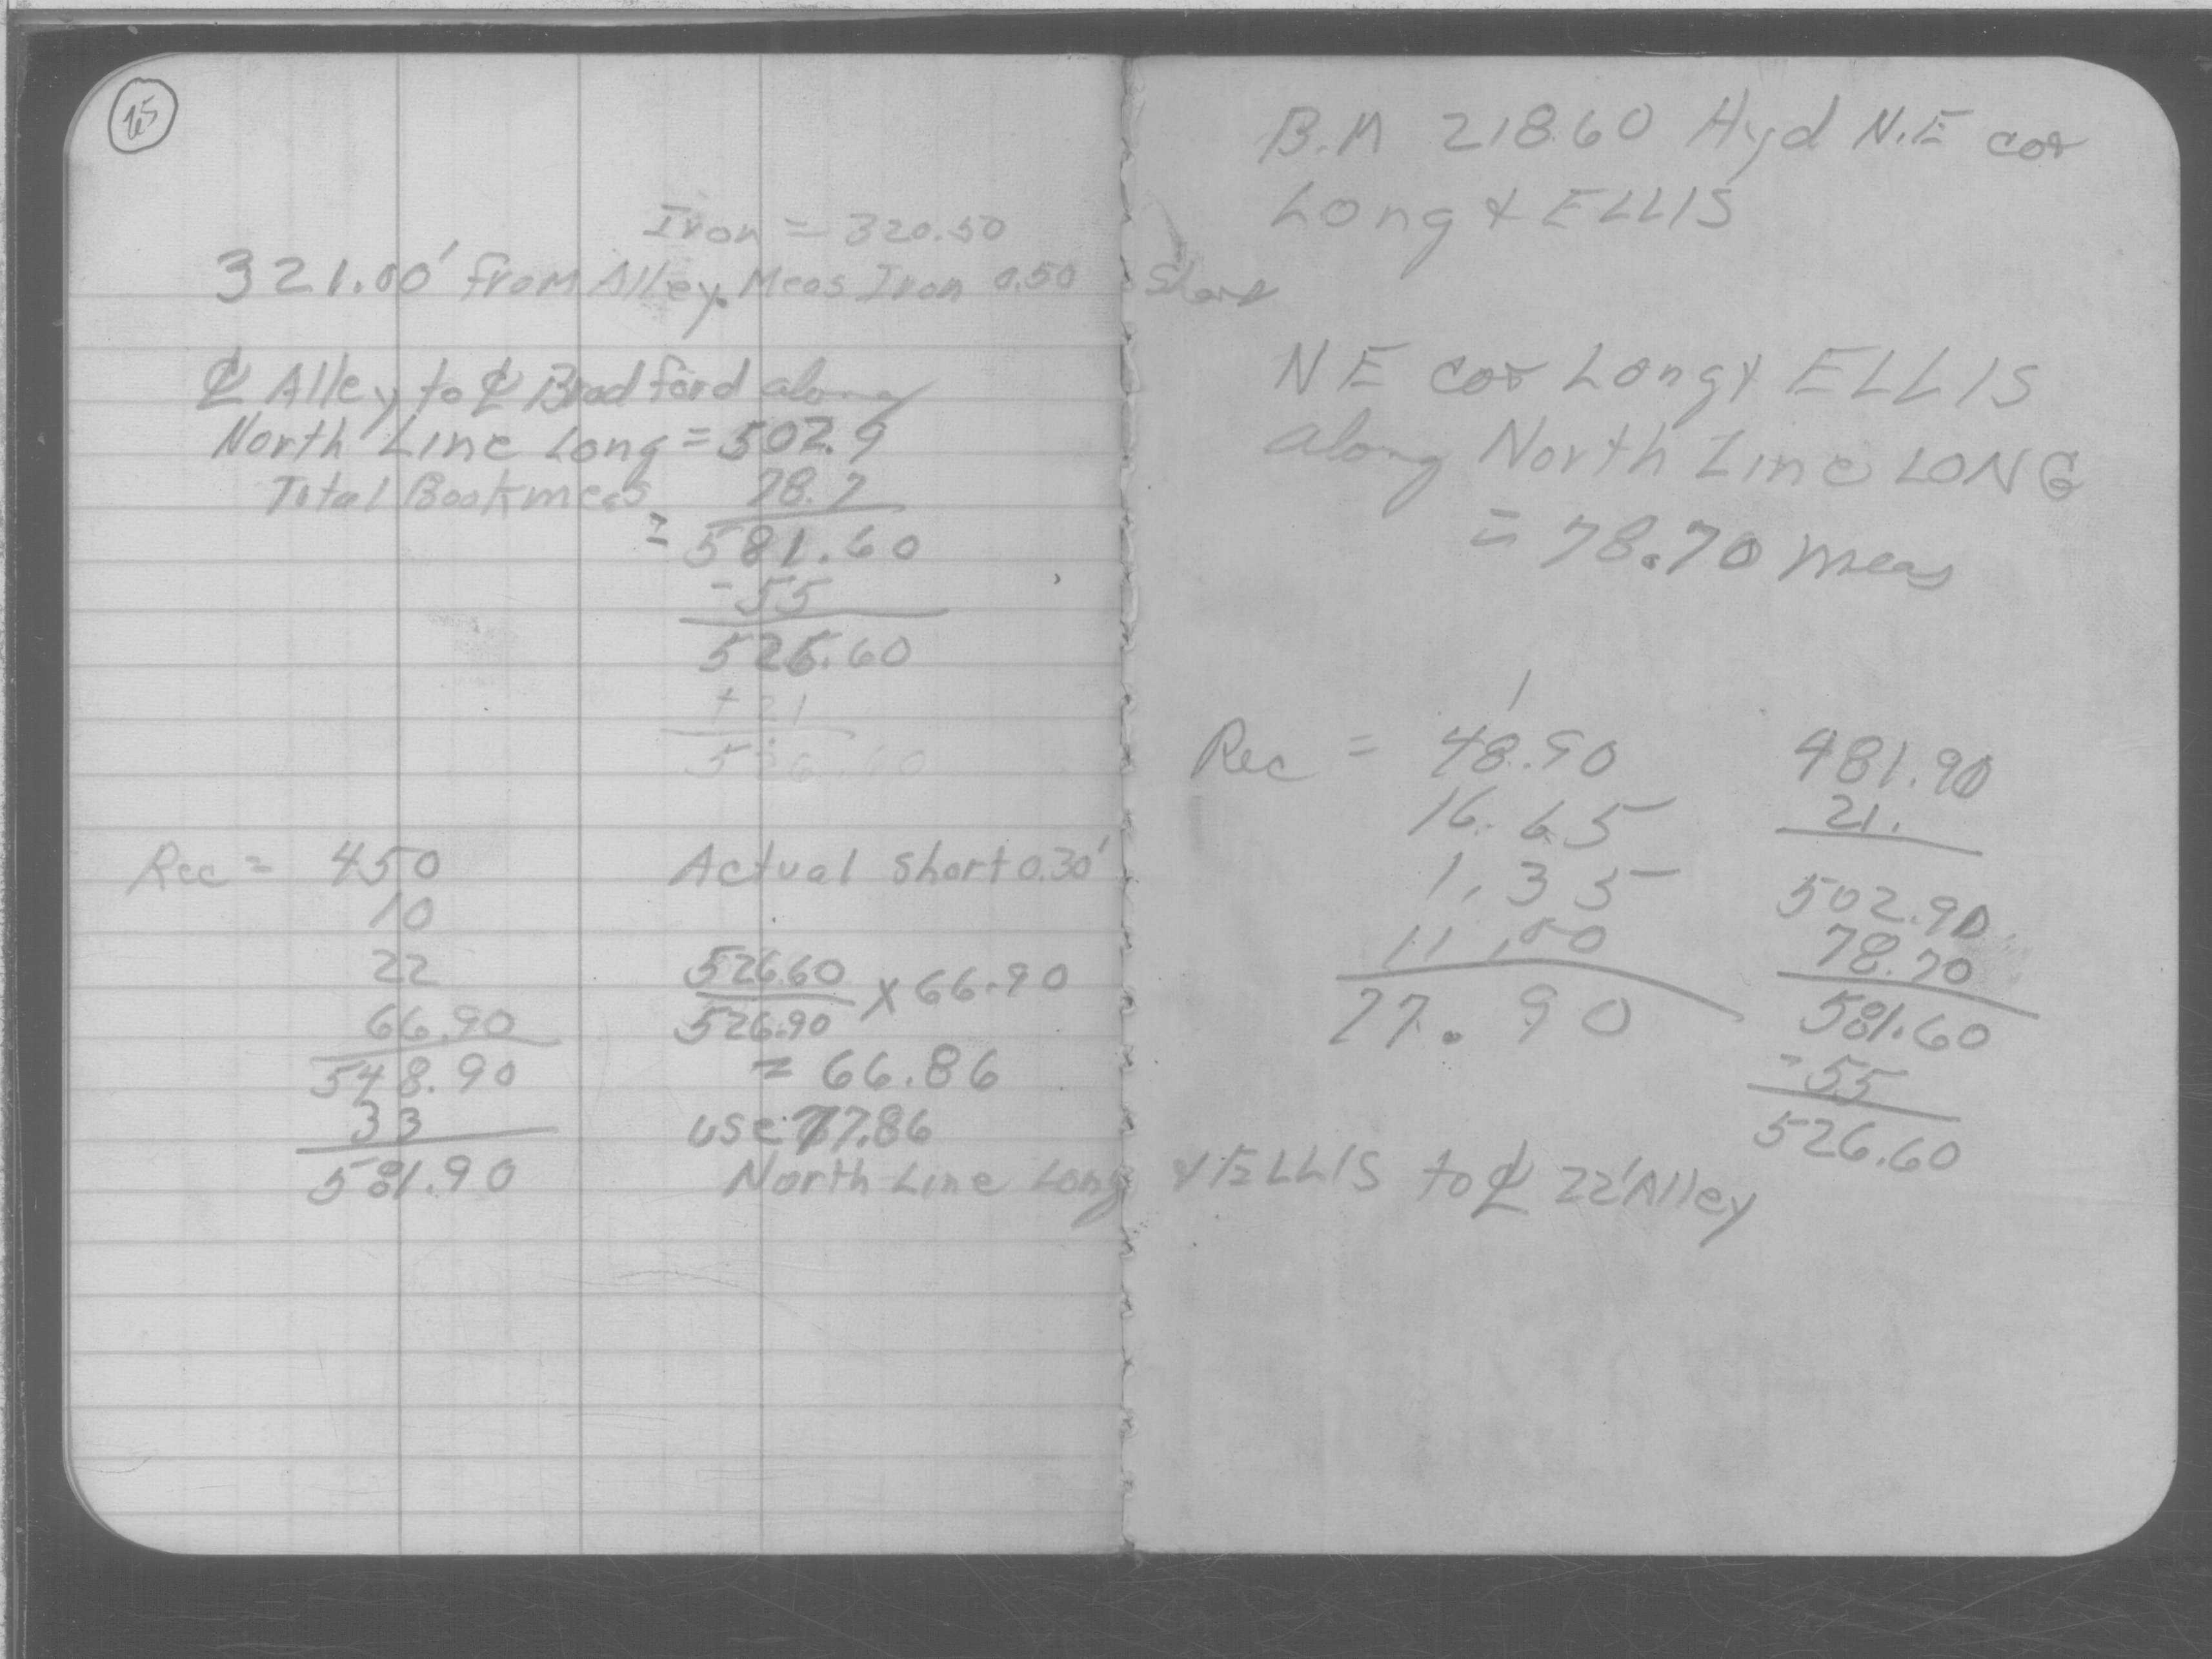 65
Iron = 320.50
321.00' from Alley. Meas Iron 0.50 Short
℄ Alley to ℄ Bradford along
North Line Long = 502.9
Total Bookmeas 78.7
= 581.60
- 55
526.60
+ 21
Rec = 450
10
22
66.90
548.90
33
581.90
Actual Short 0.30'
526.60
526.90 × 66.90
= 66.86
use 77.86
North Line Long & ELLIS to ℄ 22' Alley
B.M 218.60 Hyd N.E cor
Long & ELLIS
NE cor Long & ELLIS
along North Line LONG
= 78.70 meas
1
Rec = 48.90
16.65
1.35
11.00
77.90
481.90
21.
502.90
78.70
581.60
- 55
526.60